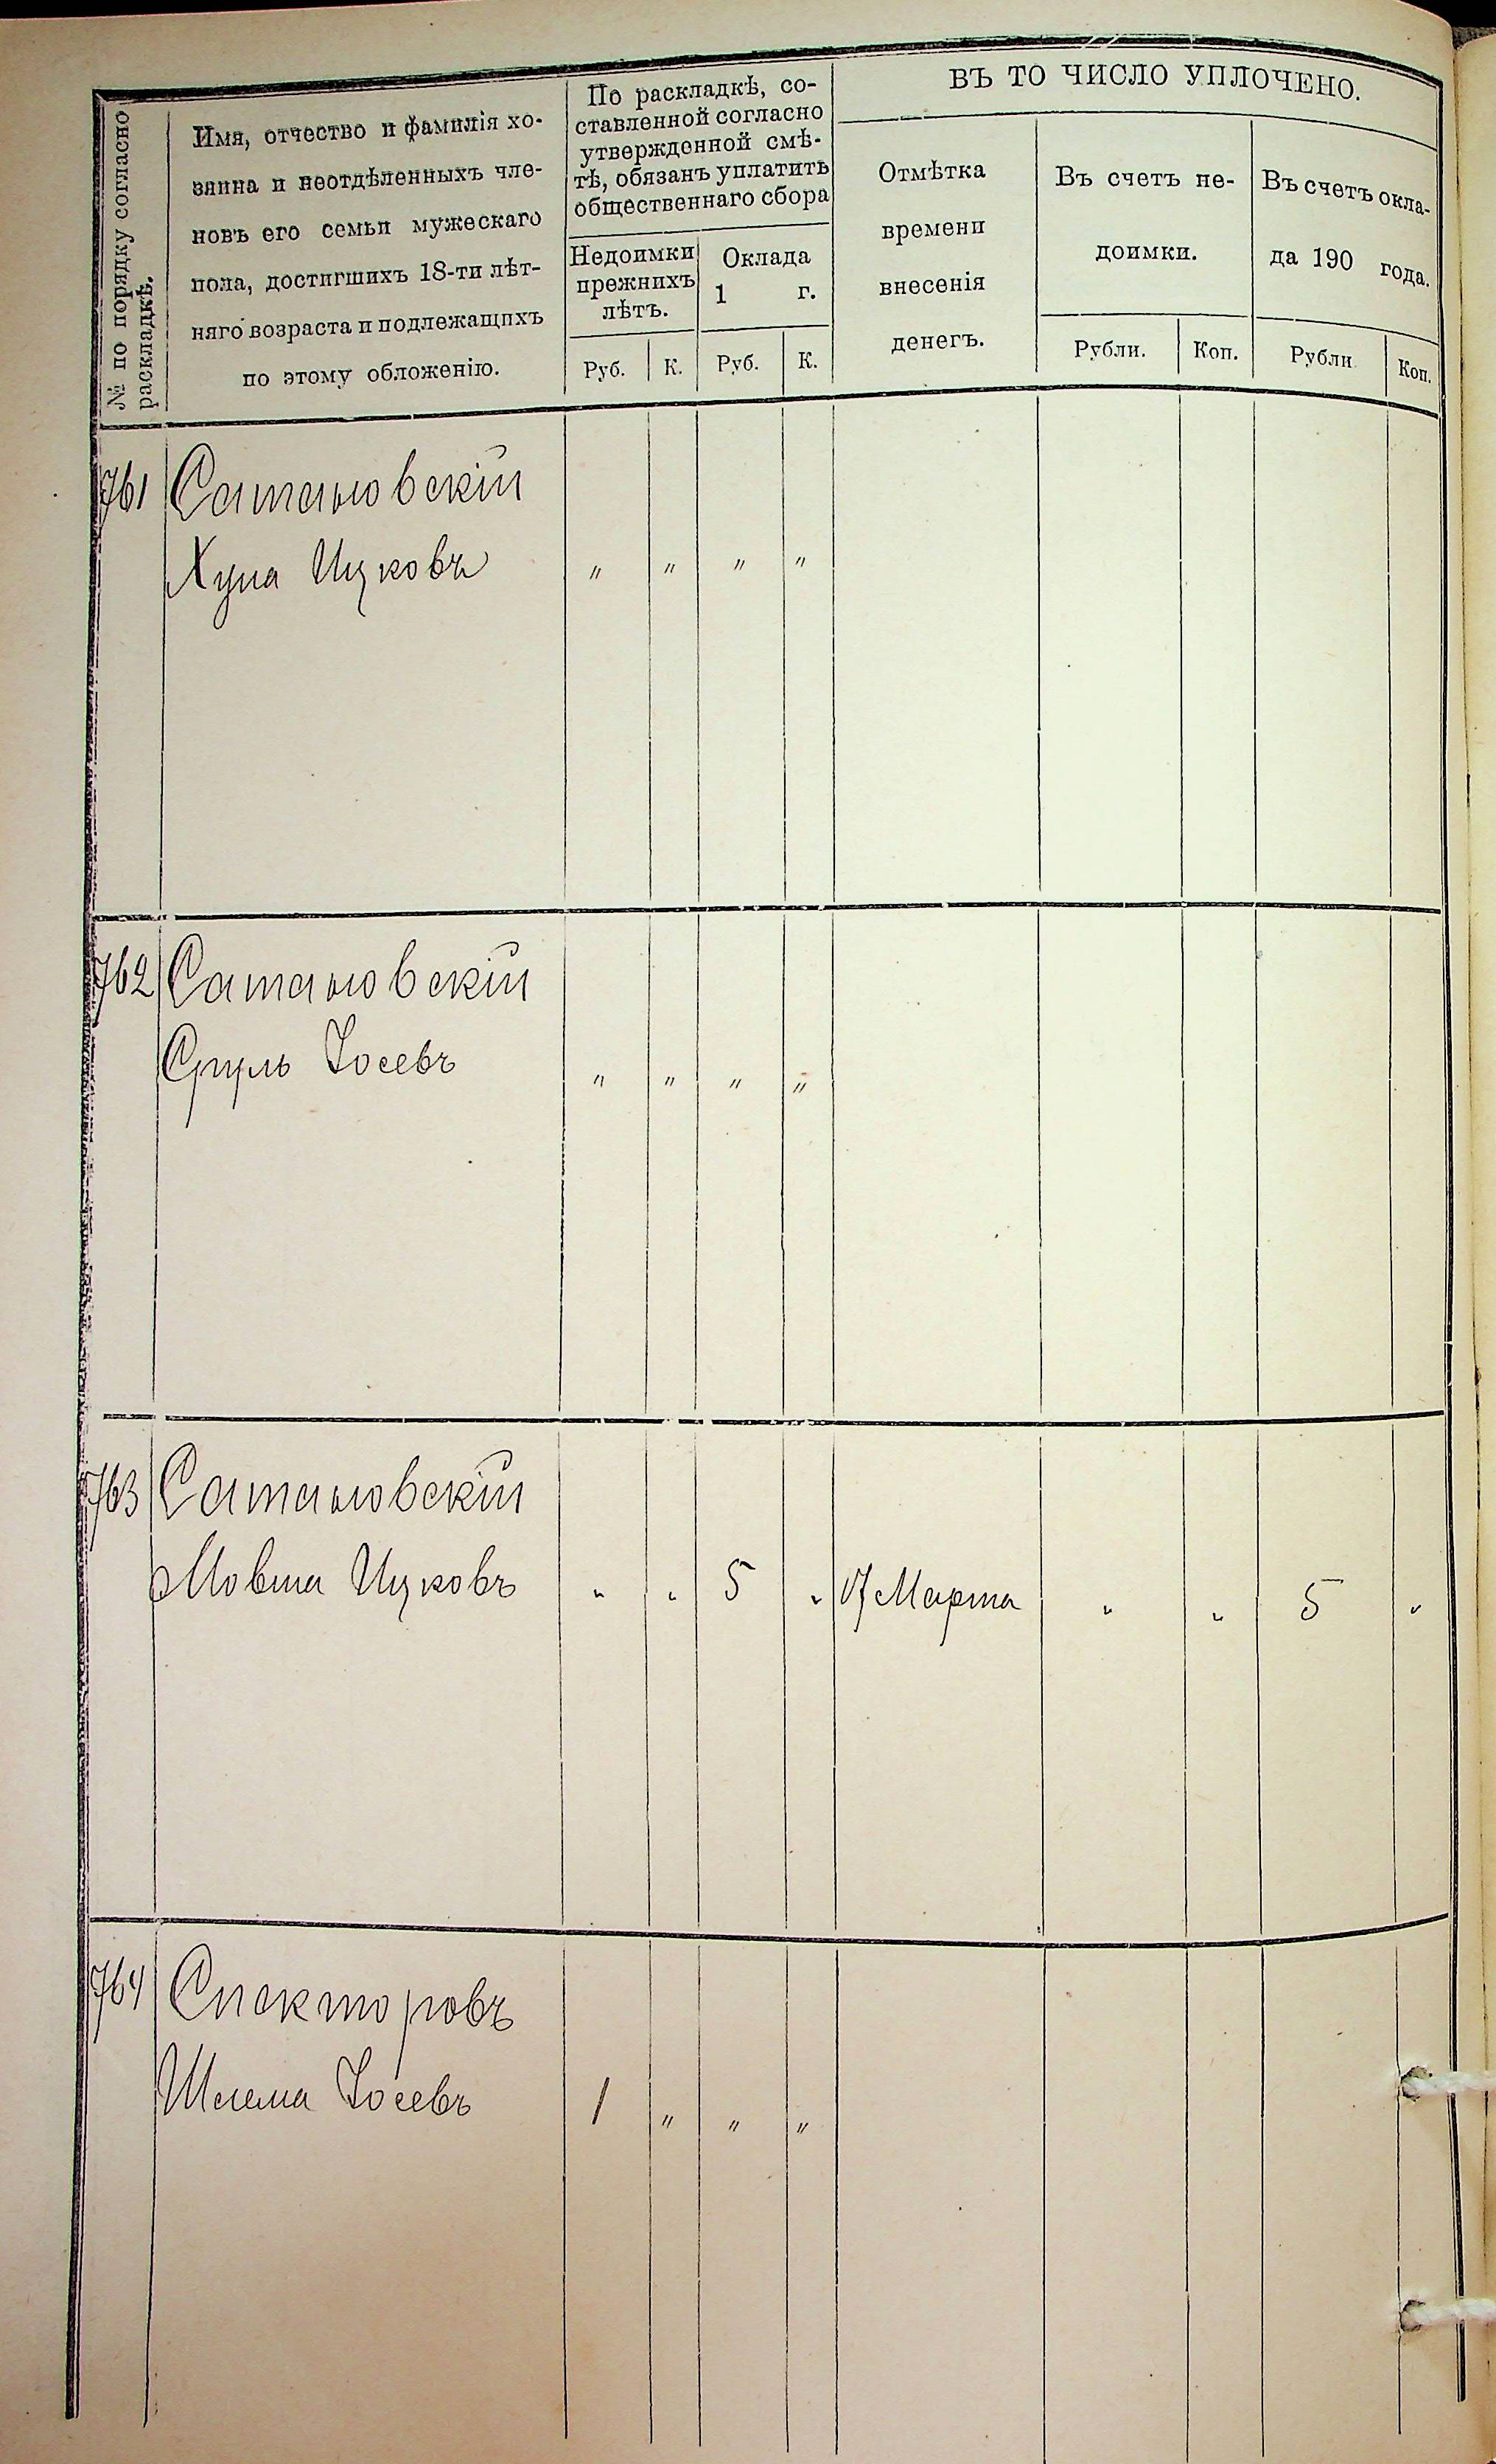 № по порядку согласно
раскладкѣ.
Имя, отчество и фамилія хо-
зяина и неотдѣленныхъ чле-
новъ его семьи мужескаго
пола, достигшихъ 18-ти лѣт-
няго возраста и подлежащихъ
по этому обложенію.
По раскладкѣ, со-
ставленной согласно
утвержденной смѣ-
тѣ, обязанъ уплатить
общественнаго сбора
Недоимки
прежнихъ
лѣтъ.
Оклада
1 г.
Руб. К. Руб. К.
ВЪ ТО ЧИСЛО УПЛОЧЕНО.
Отмѣтка
времени
внесенія
денегъ.
Въ счетъ не-
доимки.
Рубли. Коп.
Въ счетъ окла-
да 190 года.
Рубли Коп.
761 Сатановскій
Хуна Ицковъ " " " "
762 Сатановскій
Сруль Іосевъ " " " "
763 Сатановскій
Мовша Ицковъ " " 5 " 17 Марта " " 5 "
764 Спекторовъ
Шлема Іосевъ 1 " " "